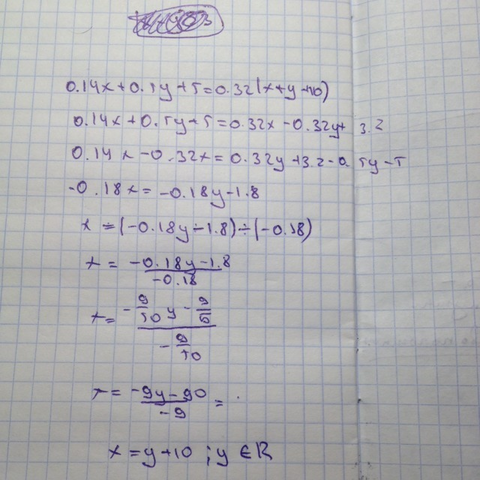 0.14x+0.5y+5=0.32(x+y+10)
0.14x+0.5y+5=0.32x-0.32y+ 3.2
0.14x-0.32x=0.32y+3.2-0.5y-5
-0.18x=-0.18y-1.8
x=(-0.18y-1.8)÷(-0.18)
x = -0.18y-1.8
-0.18
x= -9/50 y - 9/5
-9/50
x= -9y-90 =
-9
x=y+10 ; y ∈ R